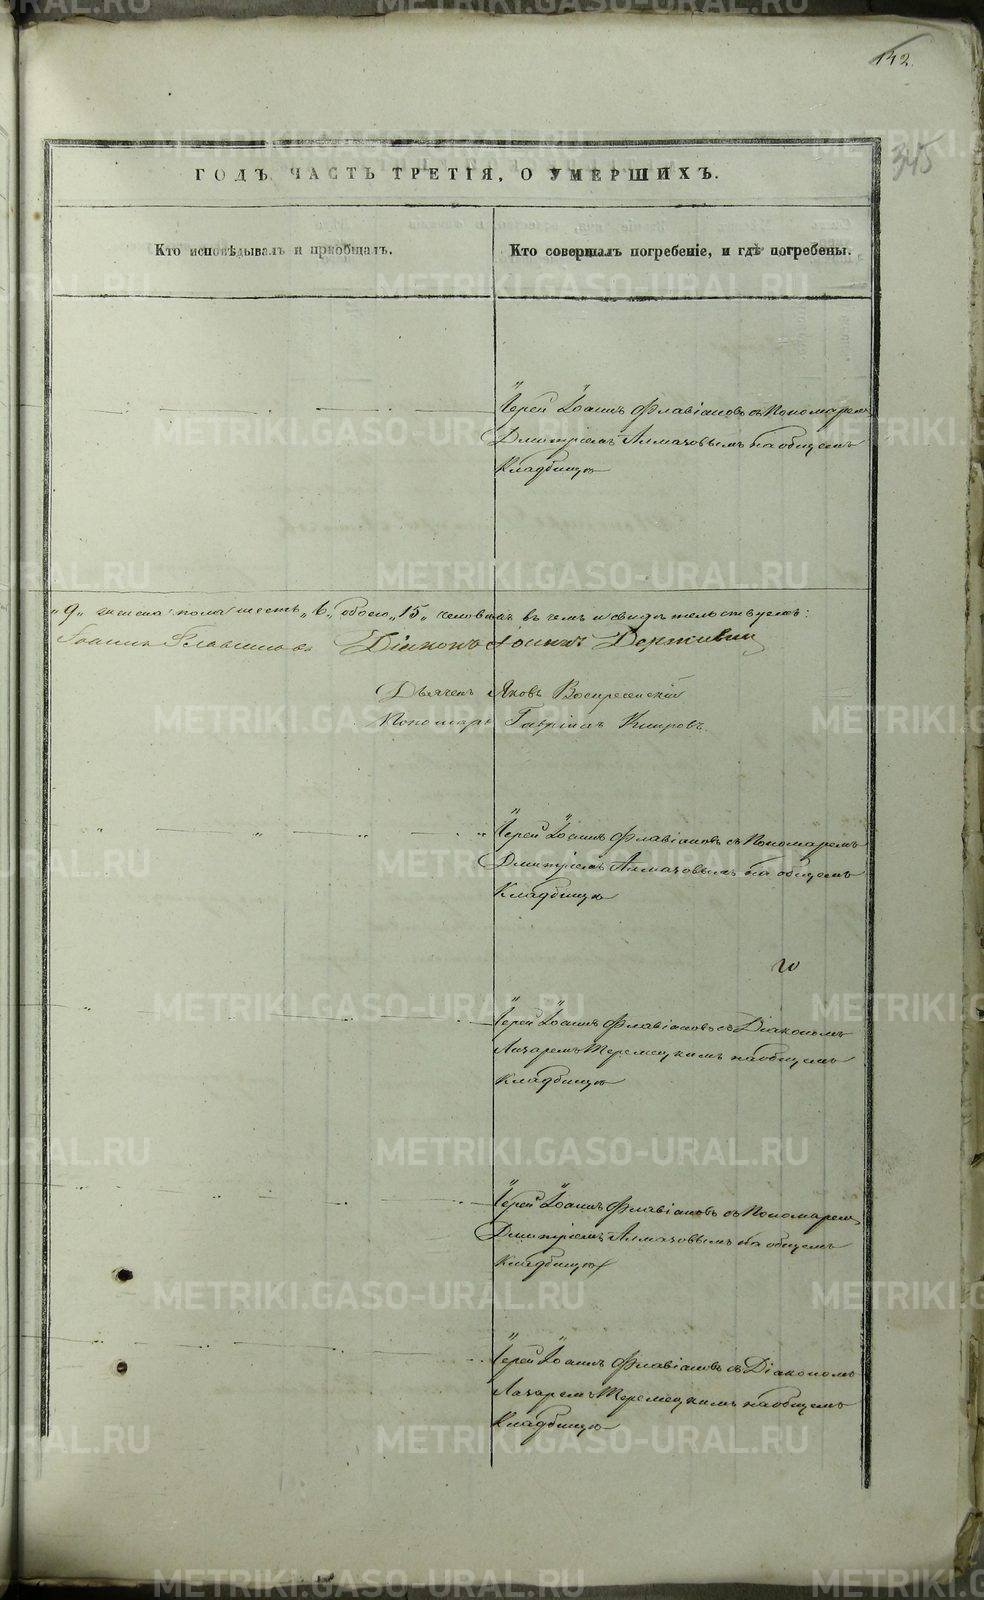 142.
345
ГОДЪ ЧАСТЬ ТРЕТІЯ, О УМЕРШИХЪ.
Кто исповѣдывалъ и пріобщалъ.
Кто совершалъ погребеніе, и гдѣ погребены.
Іерей Іоаннъ Флавіановъ съ Пономаремъ
Дмитріемъ Алмазовымъ на общемъ
Кладбищѣ
„9„ женска пола шесть „6„ обоего „15„ человѣкъ въ чемъ и свидѣтельствуемъ:
Іоаннъ Флавіановъ Діаконъ Іоаннъ
Дьячекъ Яковъ Воскресенскій
Пономарь Гавріилъ Кипровъ
Іерей Іоаннъ Флавіановъ съ Пономаремъ
Дмитріемъ Алмазовымъ на общемъ
Кладбищѣ
Іерей Іоаннъ Флавіановъ съ Діакономъ
Лазаремъ Теремецкимъ на общемъ
Кладбищѣ
Іерей Іоаннъ Флавіановъ съ Пономаремъ
Дмитріемъ Алмазовымъ на общемъ
Кладбищѣ
Іерей Іоаннъ Флавіановъ съ Діакономъ
Лазаремъ Теремецкимъ на общемъ
Кладбищѣ
METRIKI.GASO-URAL.RU